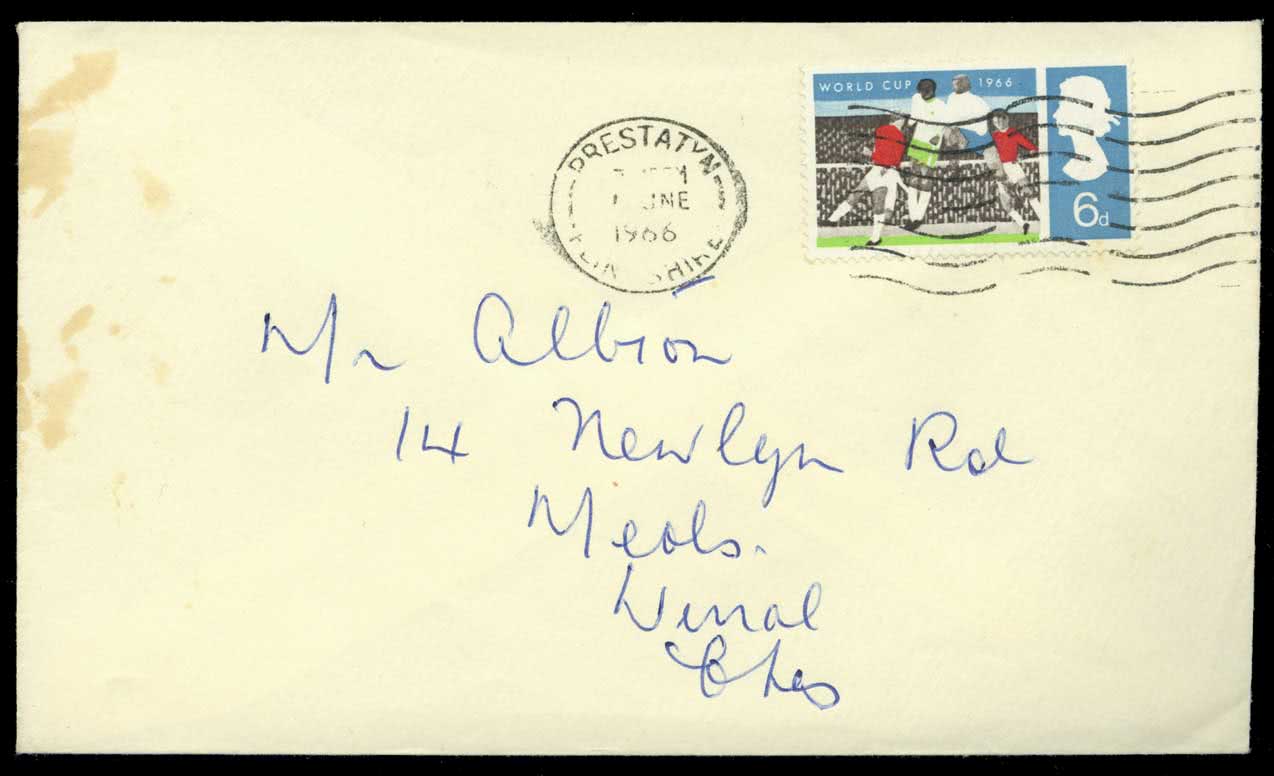 WORLD CUP 1966
6d
PRESTATYN
JUNE
1966
FLINTSHIRE
Mr Albion
14 Newlyn Rd
Meols.
Wirral
Ches